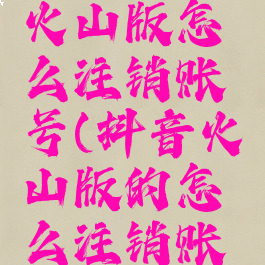 火山版怎
么注销账
号(抖音火
山版的怎
么注销账